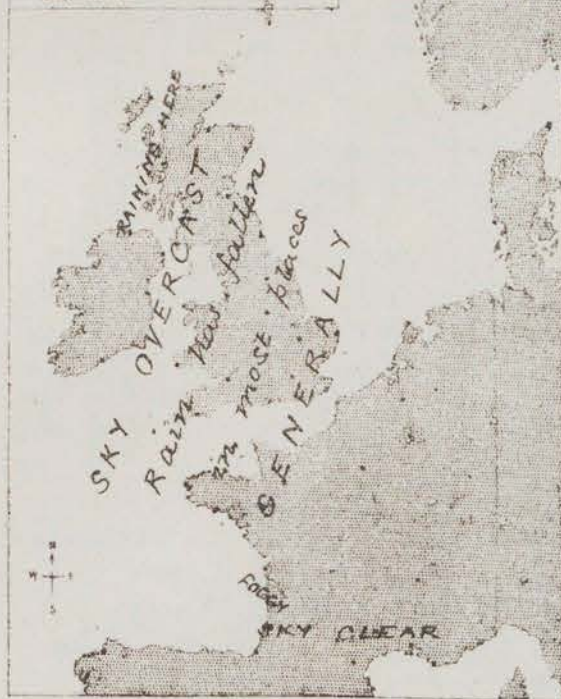 RAINING HERE
SKY OVERCAST
Rain has fallen
in most places
GENERALLY
FOGGY
SKY CLEAR
N
W E
S